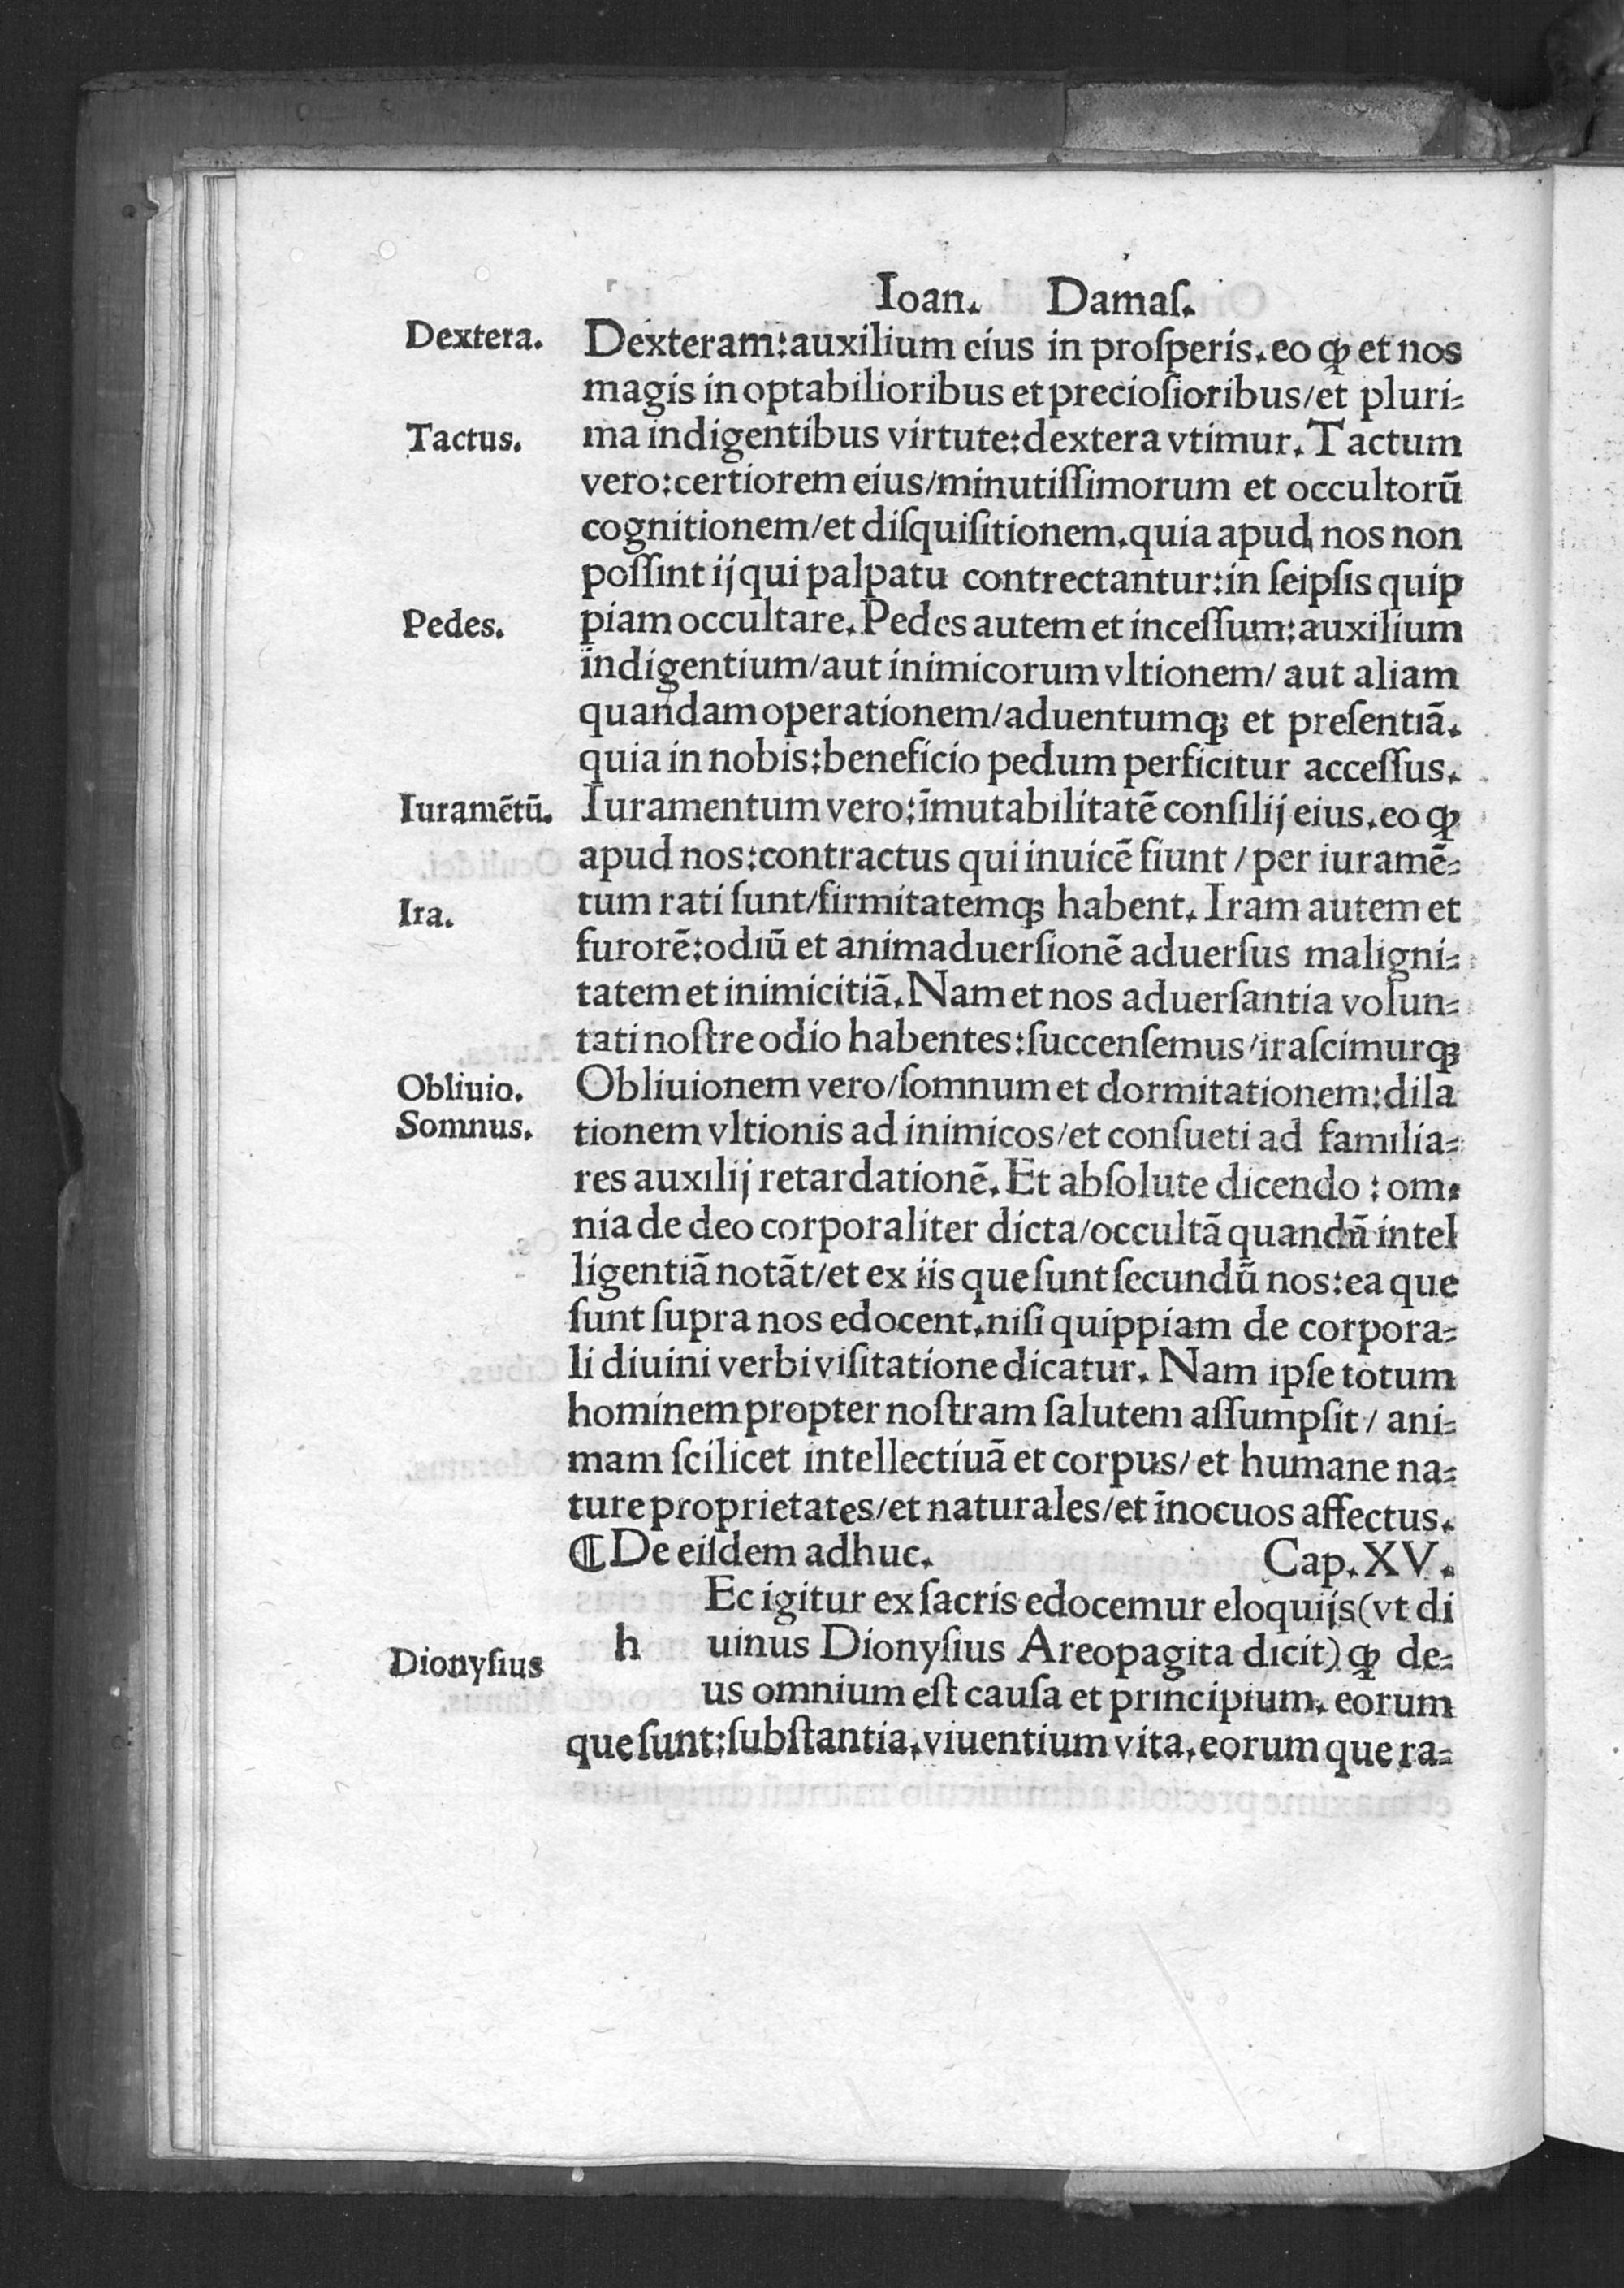 Ioan. Damaſ.
Dextera.
Dexteram:auxilium eius in proſperis.eo ꝙ et nos
magis in optabilioribus et precioſioribus/et pluri⸗
Tactus.
ma indigentibus virtute:dextera vtimur.Tactum
vero:certiorem eius/minutiſſimorum et occultorū
cognitionem/et diſquiſitionem.quia apud nos non
poſſint ij qui palpatu contrectantur:in ſeipſis quip
Pedes.
piam occultare.Pedes autem et inceſſum:auxilium
indigentium/aut inimicorum vltionem/ aut aliam
quandam operationem/aduentumqꝫ et preſentiā.
quia in nobis:beneficio pedum perficitur acceſſus.
Iuramētū.
Iuramentum vero:īmutabilitatē conſilij eius.eo ꝙ
apud nos:contractus qui inuicē fiunt/per iuramē⸗
Ira.
tum rati ſunt/firmitatemqꝫ habent. Iram autem et
furorē:odiū et animaduerſionē aduerſus maligni⸗
tatem et inimicitiā.Nam et nos aduerſantia volun⸗
tati noſtre odio habentes:ſuccenſemus/iraſcimurqꝫ
Obliuio.
Obliuionem vero/ſomnum et dormitationem:dila
Somnus.
tionem vltionis ad inimicos/et conſueti ad familia⸗
res auxilij retardationē.Et abſolute dicendo : om⸗
nia de deo corporaliter dicta/occultā quandā intel
ligentiā notāt/et ex iis que ſunt ſecundū nos:ea que
ſunt ſupra nos edocent.niſi quippiam de corpora⸗
li diuini verbi viſitatione dicatur. Nam ipſe totum
hominem propter noſtram ſalutem aſſumpſit/ ani⸗
mam ſcilicet intellectiuā et corpus/et humane na⸗
ture proprietates/et naturales/et īnocuos affectus.
¶De eiſdem adhuc. Cap.XV.
Ec igitur ex ſacris edocemur eloquijs(vt di
Dionyſius
h uinus Dionyſius Areopagita dicit)ꝙ de⸗
us omnium eſt cauſa et principium. eorum
que ſunt:ſubſtantia.viuentium vita.eorum que ra⸗